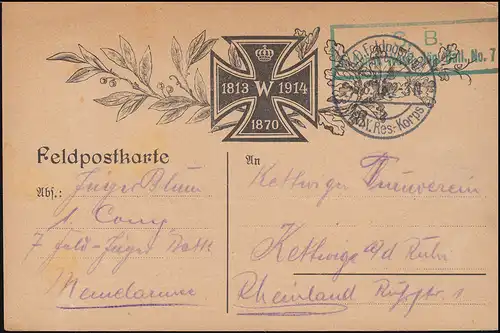 S B
Batl. No. 7
1813 W 1914
1870
Feldpostkarte
Abs.: Jäger Blum
1. Comp
7 Feld-Jäger Batl.
An
Kettwiger Turnverein
Kettwig a/d Ruhr
Rheinland Ruhrstr. 1
Res.-Korps